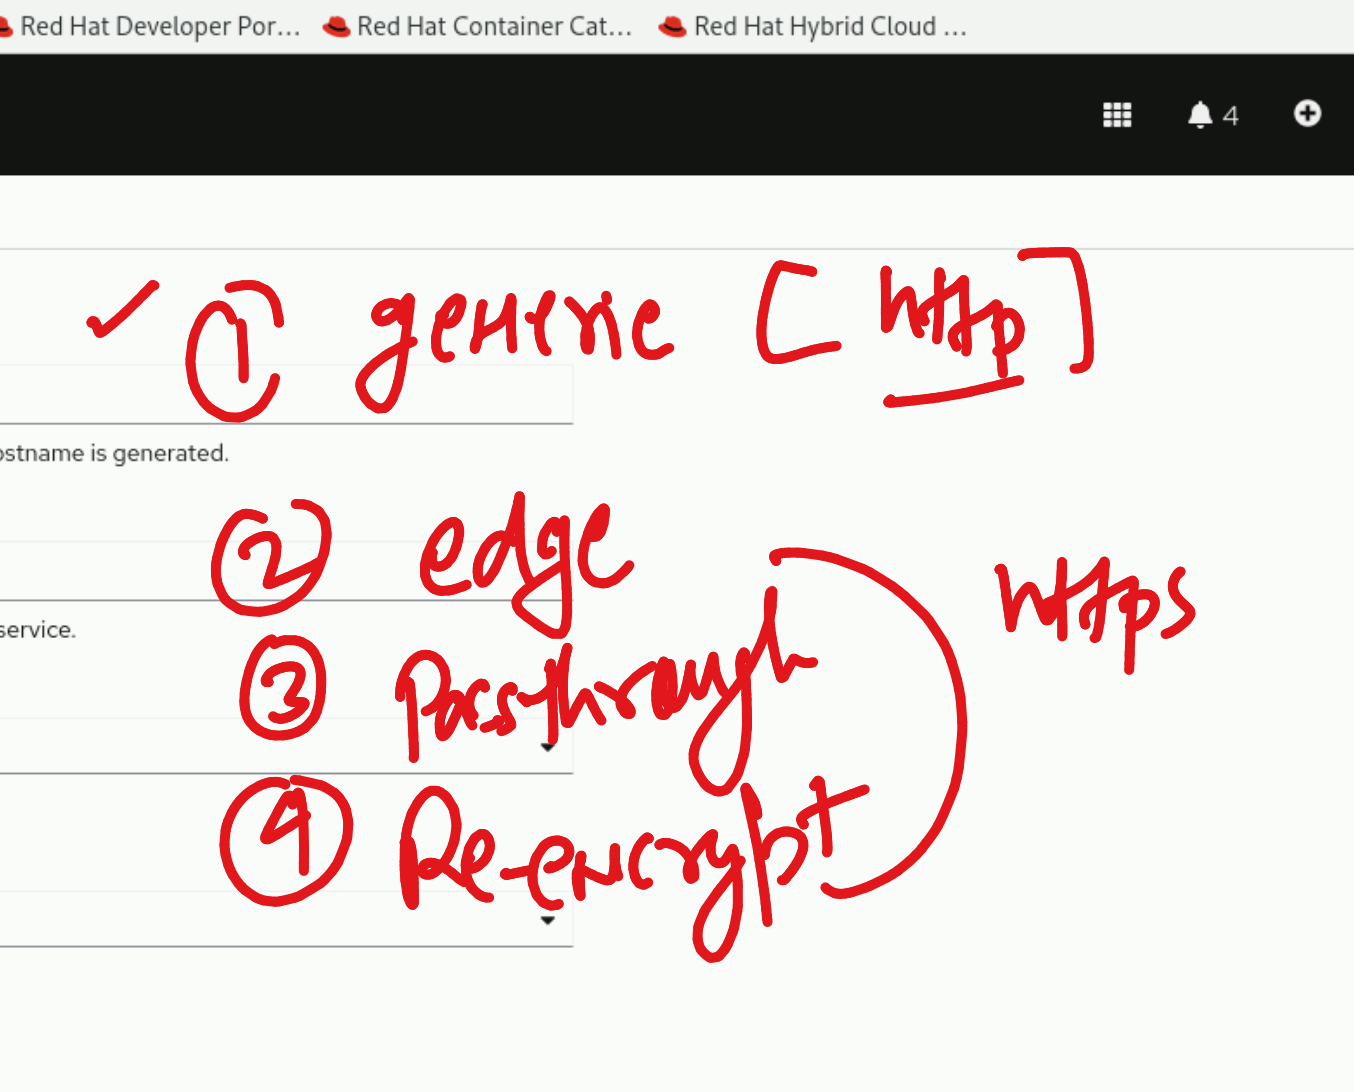 Red Hat Developer Por... Red Hat Container Cat... Red Hat Hybrid Cloud ...
4
1 generic [http]
ostname is generated.
2 edge
https
service.
3 Passthrough
4 Re-encrypt